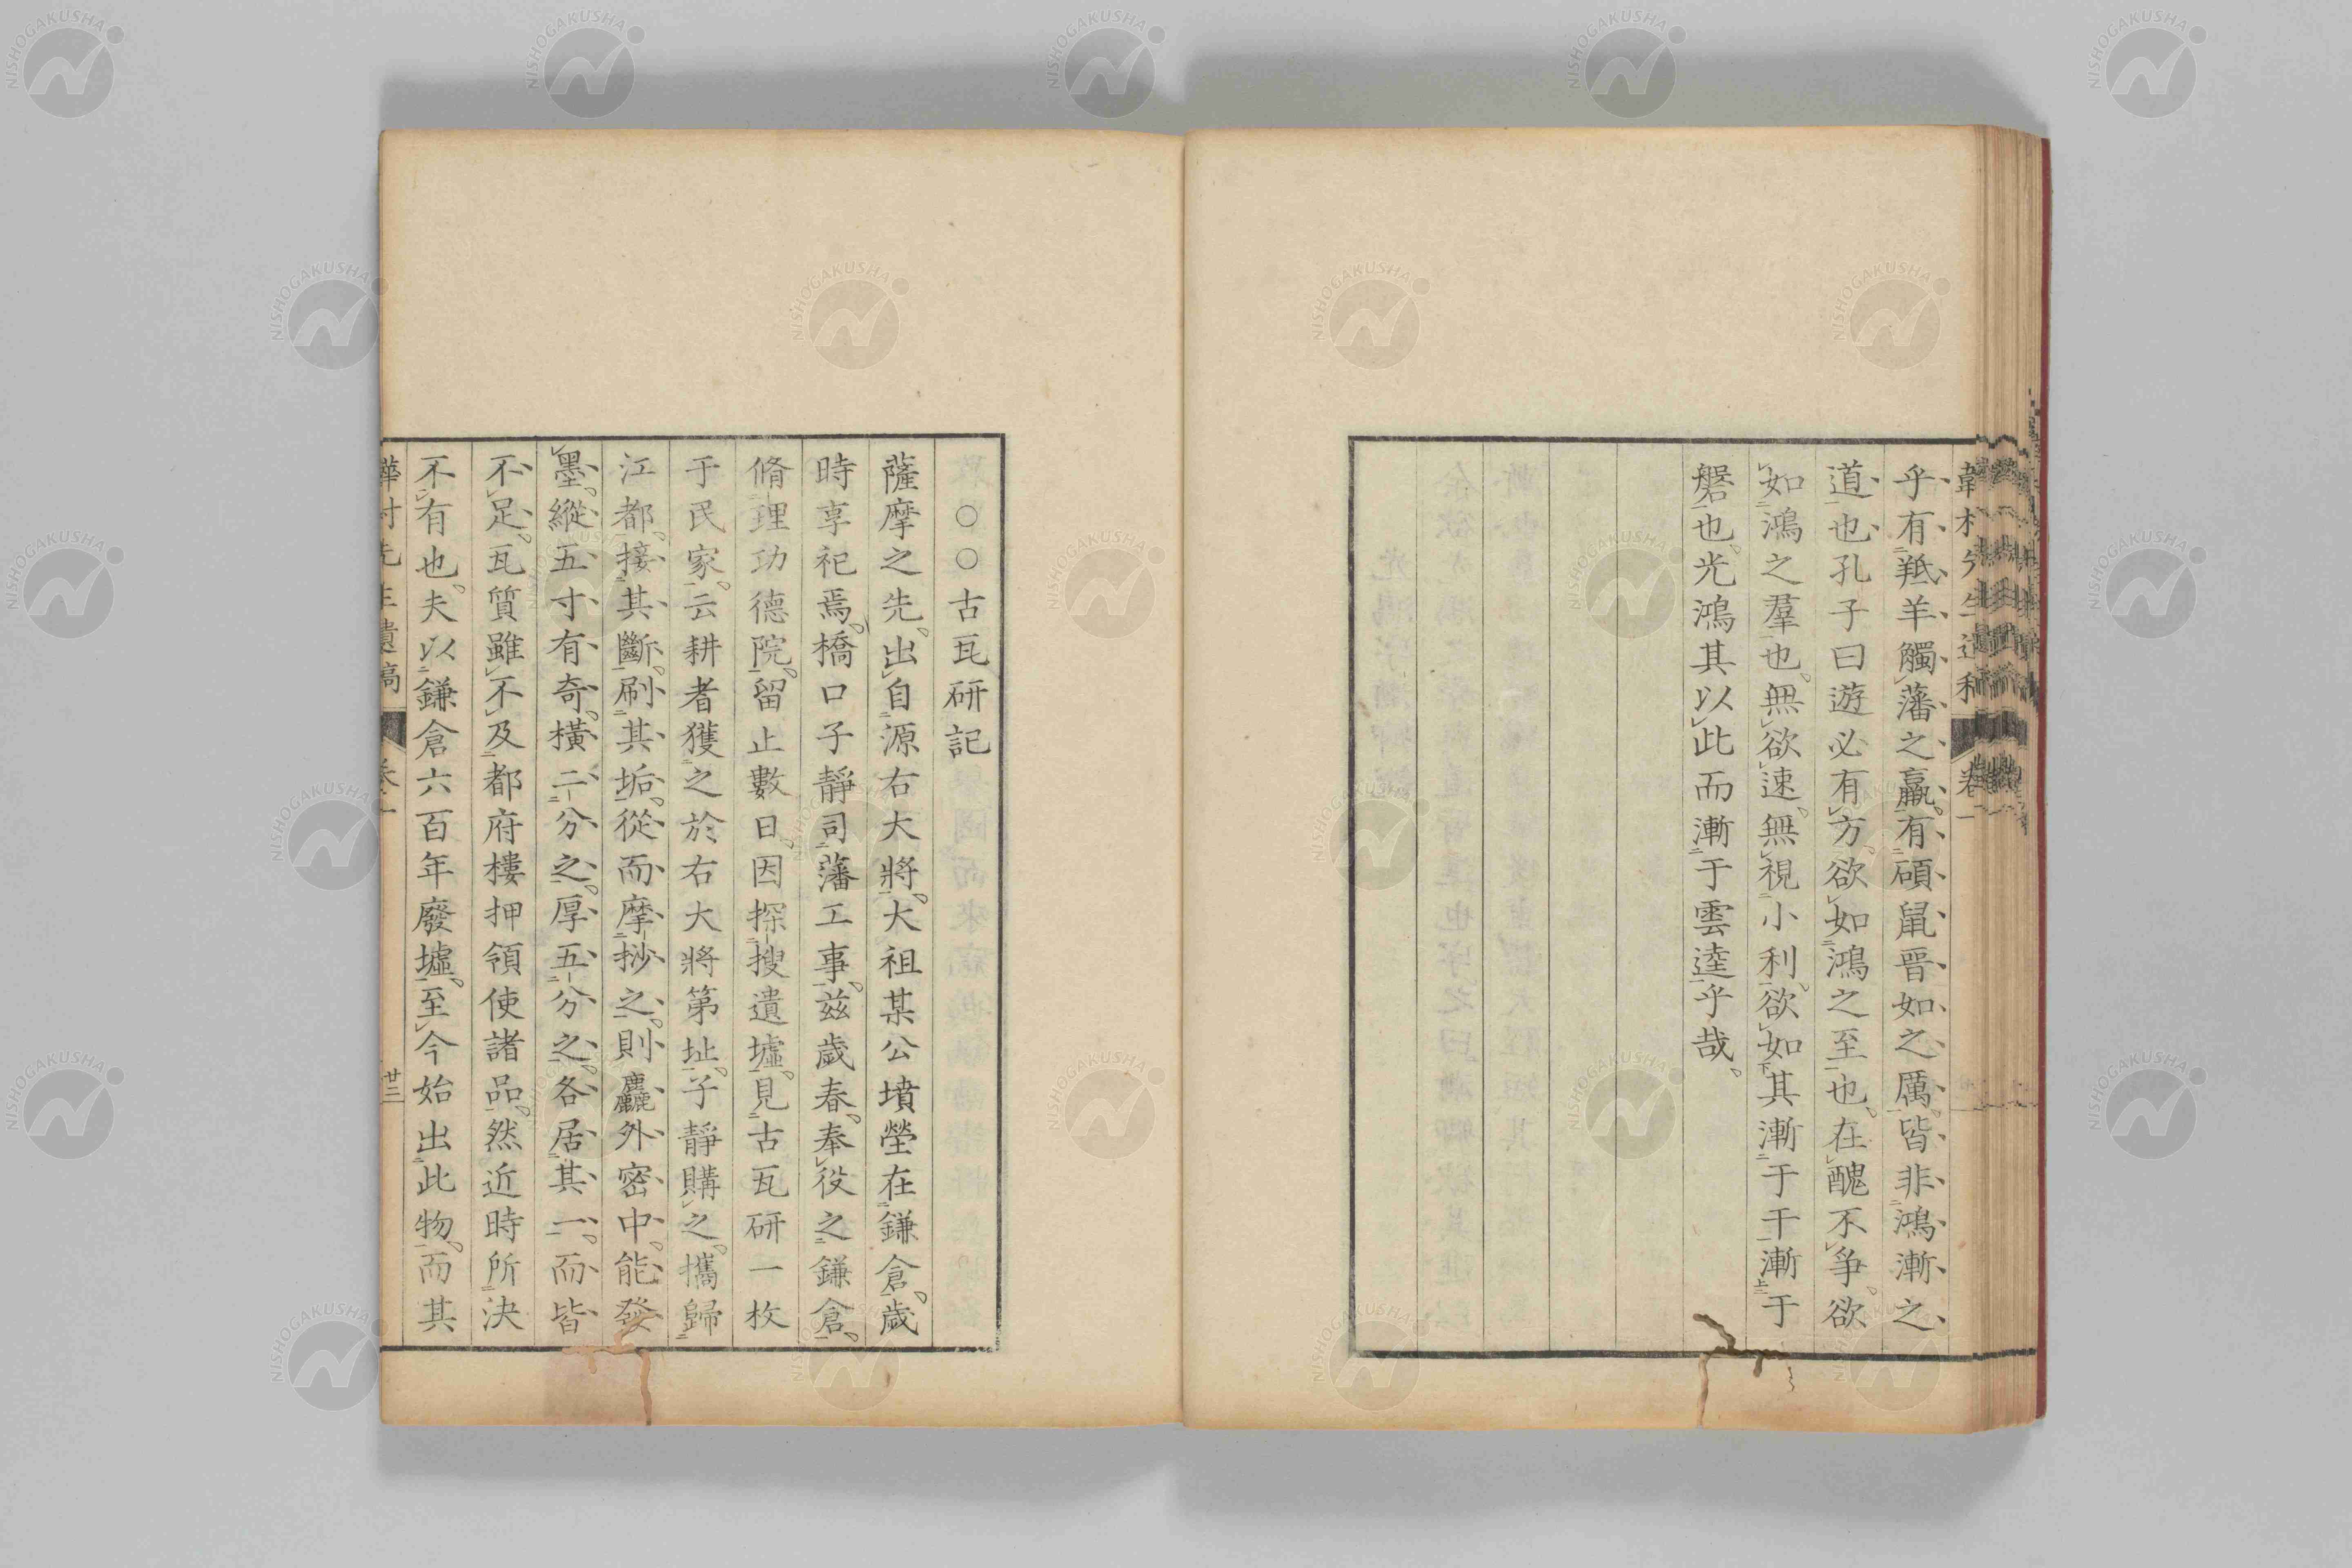 乎有羝羊觸藩之羸有碩鼠晉如之厲皆非鴻漸之
道也孔子曰遊必有方欲如鴻之至也在醜不爭欲
如鴻之羣也無欲速無視小利欲如其漸于干漸于
磐也光鴻其以此而漸于雲逵乎哉
○○古瓦研記
薩摩之先出自源右大將大祖某公墳塋在鎌倉歲
時享祀焉橋口子靜司藩工事茲歲春奉役之鎌倉
脩理功德院留止數日因探搜遺墟見古瓦研一枚
于民家云耕者獲之於右大將第址子靜購之攜歸
江都接其斷刷其垢從而摩抄之則麤外密中能發
墨縱五寸有奇橫二分之厚五分之各居其一而皆
不足瓦質雖不及都府樓押領使諸品然近時所決
不有也夫以鎌倉六百年廢墟至今始出此物而其
先生遺稿 卷一 廿三
NISHOGAKUSHA